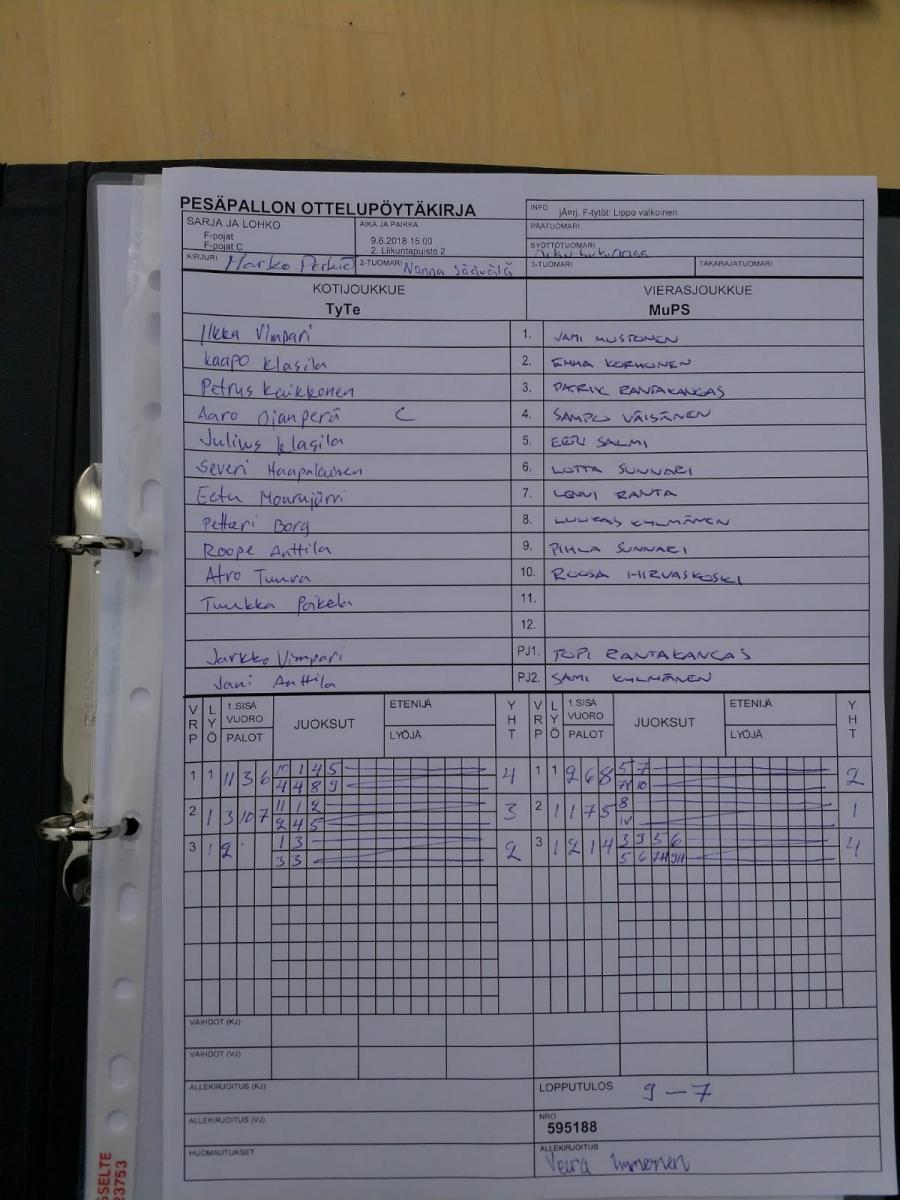 PESÄPALLON OTTELUPÖYTÄKIRJA
INFO jÃ¤rj. F-tytöt: Lippo valkoinen
SARJA JA LOHKO
F-pojat
F-pojat C
AIKA JA PAIKKA
9.6.2018 15:00
2. Liikuntapuisto 2
PÄÄTUOMARI
SYÖTTÖTUOMARI
KIRJURI Marko Perkiö 2-TUOMARI Nanna Säävälä 3-TUOMARI TAKARAJATUOMARI
KOTIJOUKKUE VIERASJOUKKUE
TyTe MuPS
Ilkka Vimpari 1. JAMI MUSTONEN
Kaapo Klasila 2. EMMA KORHONEN
Petrus Kaikkonen 3. PATRIK RANTAKANGAS
Aaro Ojanperä C 4. SAMPO VÄISÄNEN
Julius Klasila 5. EERI SALMI
Severi Haapalainen 6. LOTTA SUNNARI
Eetu Mourujärvi 7. LENNI RANTA
Petteri Borg 8. LUUKAS KYLMÄNEN
Roope Anttila 9. PIHLA SUNNARI
Atro Tuura 10. ROOSA HIRVASKOSKI
Tuukka Poikela 11.
12.
Jarkko Vimpari PJ1. TOPI RANTAKANGAS
Jani Anttila PJ2. SAMI KYLMÄNEN
VRP LYÖ 1.SISÄ VUORO PALOT JUOKSUT ETENIJÄ LYÖJÄ YHT VRP LYÖ 1.SISÄ VUORO PALOT JUOKSUT ETENIJÄ LYÖJÄ YHT
1 1 11 3 6 10 1 4 5 4 1 1 2 6 8 5 7 2
4 4 8 9 10
2 1 3 10 7 11 1 2 3 2 1 1 7 5 8 1
2 4 5 1V
3 1 2 1 3 2 3 1 2 1 4 3 3 5 6 4
3 3 5 6 7H 9H
VAIHDOT (KJ)
VAIHDOT (VJ)
ALLEKIRJOITUS (KJ) LOPPUTULOS 9-7
ALLEKIRJOITUS (VJ) NRO
595188
HUOMAUTUKSET ALLEKIRJOITUS
Veera Immonen
SSELTE
23753